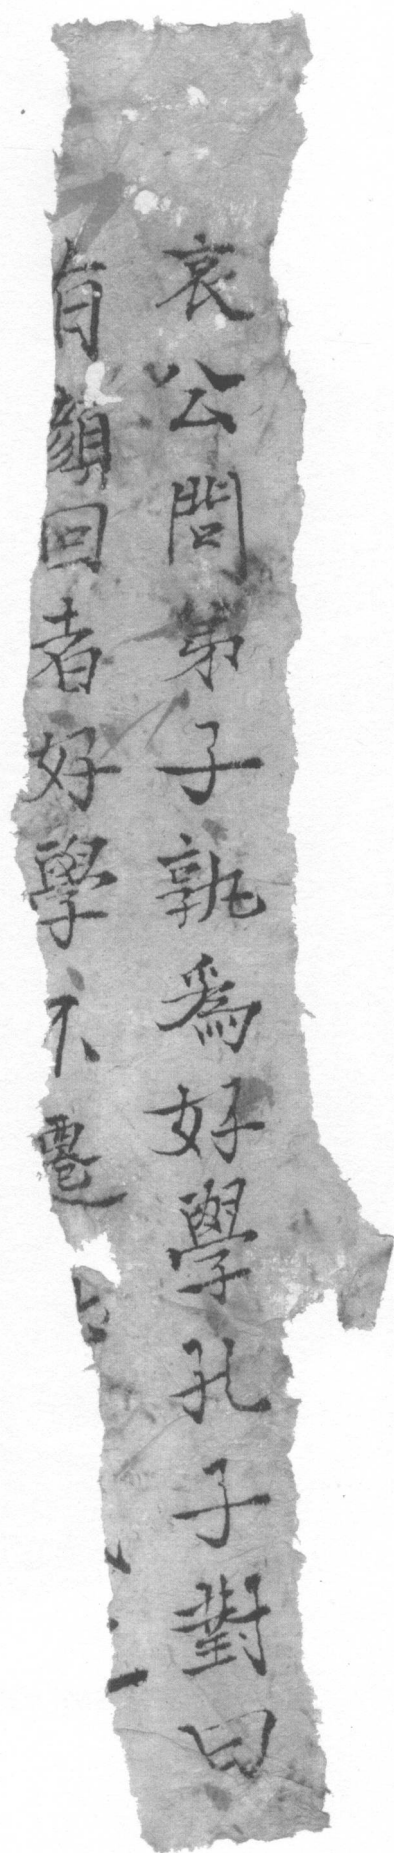 哀公問弟子孰爲好學孔子對曰
有顏回者好學不遷